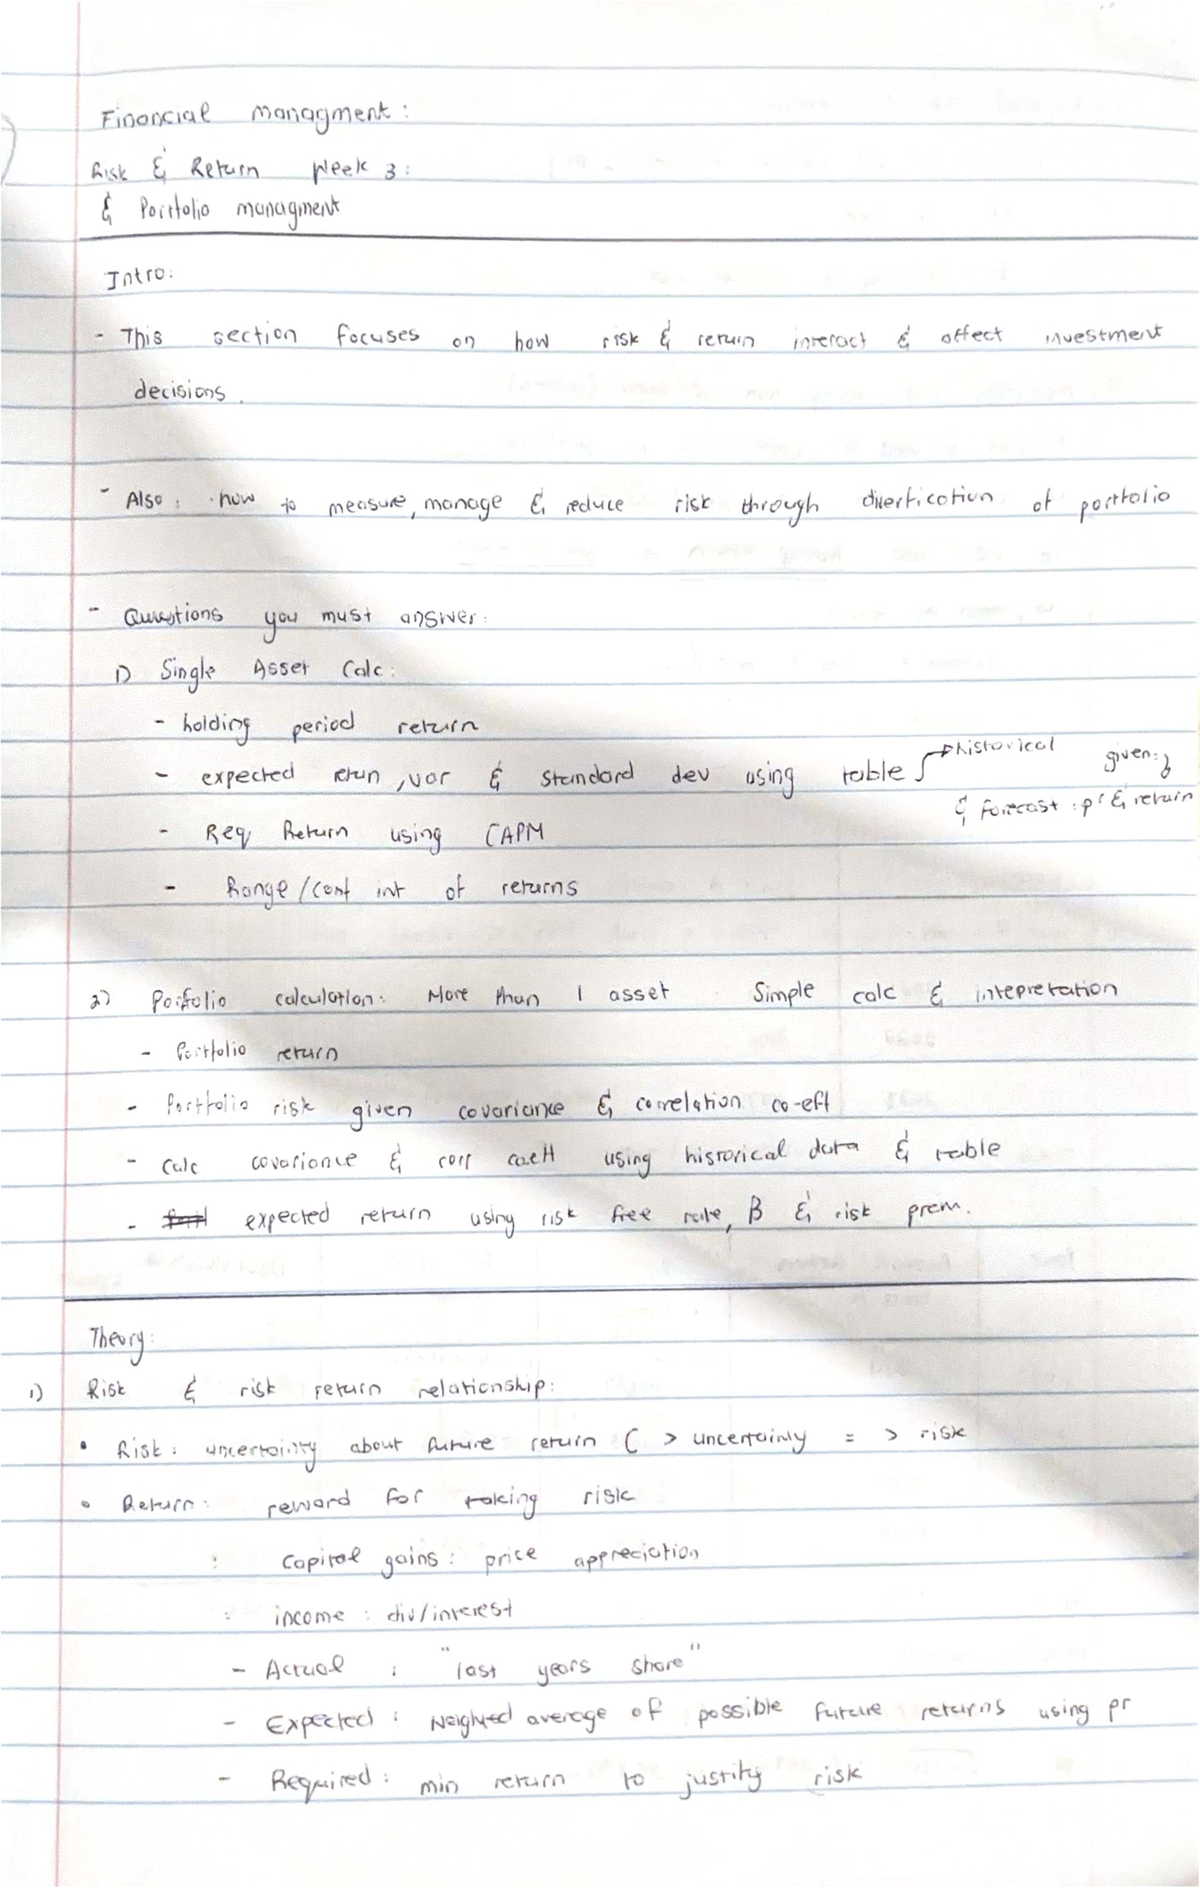 Financial managment:
Risk & Return Week 3:
& Portfolio managment
Intro:
- This section focuses on how risk & return interact & affect investment
decisions.
- Also: how to measure, manage & reduce risk through diverfication of portfolio
- Questions you must answer:
1) Single Asset Calc:
- holding period return
- expected retun, var & standard dev using table { historical given:}
& forecast: pr & return
- Req Return using CAPM
- Range/conf int of returns
2) Portfolio calculation: More than 1 asset Simple calc & intepretation
- Portfolio return
- Portfolio risk given covariance & correlation co-eff
- Calc covariance & corr coeff using historical data & table
- expected return using risk free rate, β & risk prem.
Theory:
1) Risk & risk return relationship:
• Risk: uncertainty about future return ( > uncertainty = > risk
• Return: reward for taking risk
: Capital gains: price appreciation
: income: div/interest
- Actual : "last years share"
- Expected: Weighted average of possible future returns using pr
- Required: min return to justify risk